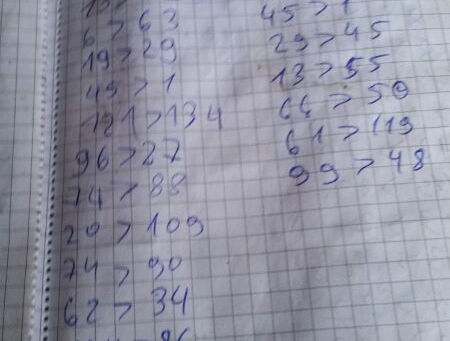 6 > 63
19 > 29
49 > 1
121 > 134
96 > 27
14 > 88
20 > 109
74 > 90
62 > 34
45 > 1
29 > 45
13 > 55
64 > 50
61 > 119
99 > 48